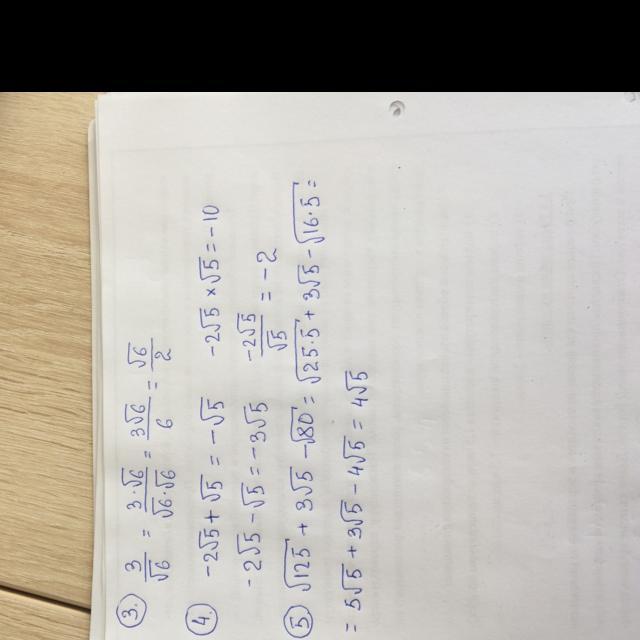 3. 3/√6 = 3·√6/√6·√6 = 3√6/6 = √6/2
4. -2√5 + √5 = -√5 -2√5 × √5 = -10
-2√5 - √5 = -3√5 -2√5/√5 = -2
5. √125 + 3√5 - √80 = √25·5 + 3√5 - √16·5 =
= 5√5 + 3√5 - 4√5 = 4√5